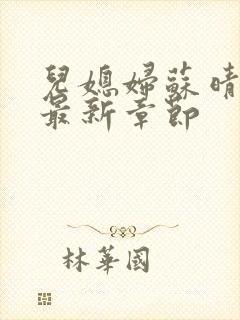 兒媳婦蘇晴
最新章節
林華國